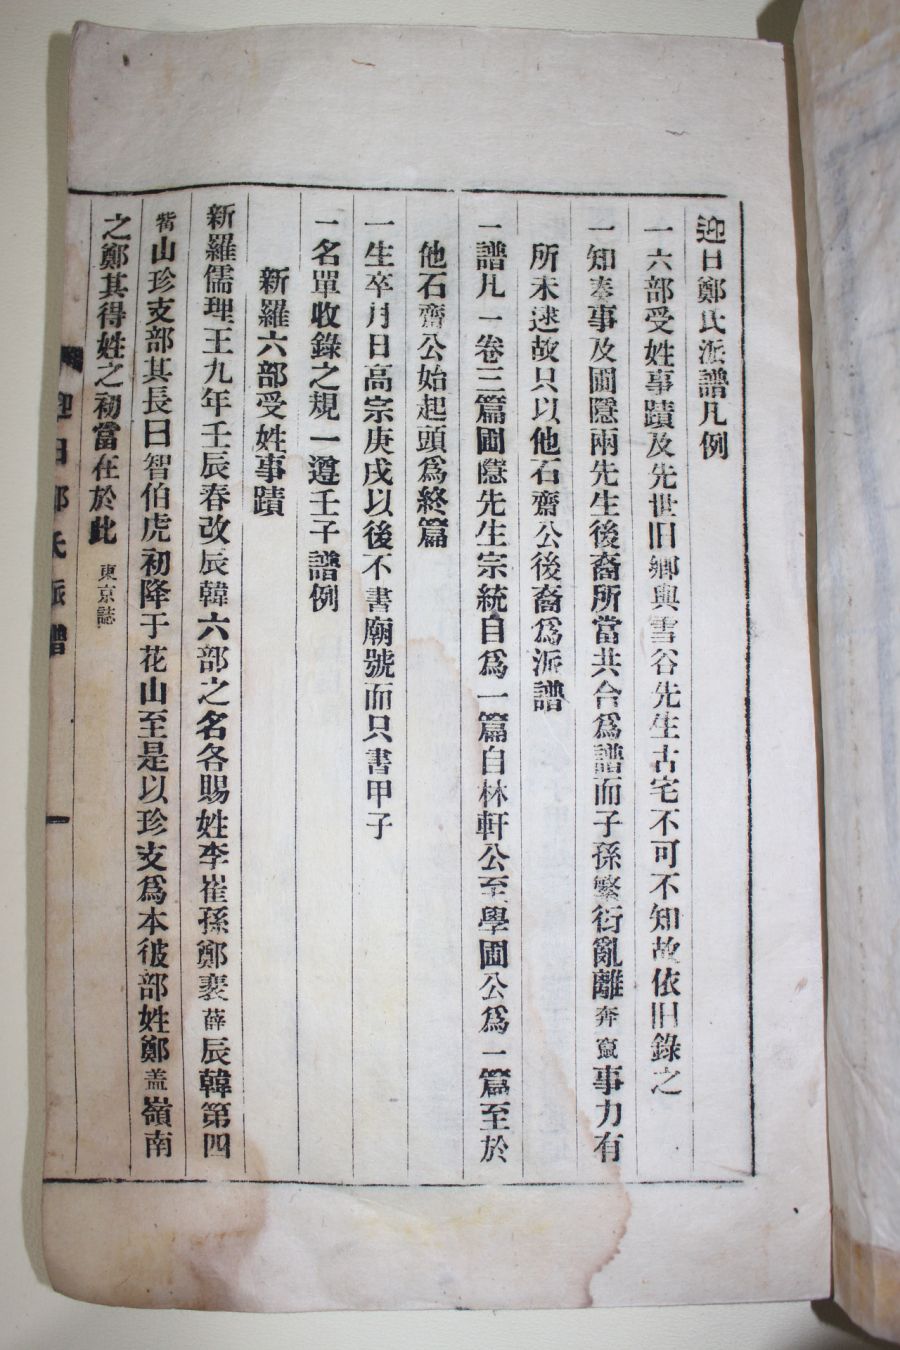 迎日鄭氏派譜凡例
一六部受姓事蹟及先世旧鄕與雪谷先生古宅不可不知故依旧錄之
一知奉事及圃隱兩先生後裔所當共合爲譜而子孫繁衍亂離奔竄事力有
所未逮故只以他石齋公後裔爲派譜
一譜凡一卷三篇圃隱先生宗統自爲一篇自林軒公至學圃公爲一篇至於
他石齋公始起頭爲終篇
一生卒月日高宗庚戌以後不書廟號而只書甲子
一名單收錄之規一遵壬子譜例
新羅六部受姓事蹟
新羅儒理王九年壬辰春改辰韓六部之名各賜姓李崔孫鄭裵薛辰韓第四
觜山珍支部其長曰智伯虎初降于花山至是以珍支爲本彼部姓鄭盖嶺南
之鄭其得姓之初當在於此 東京誌
迎日鄭氏派譜 一